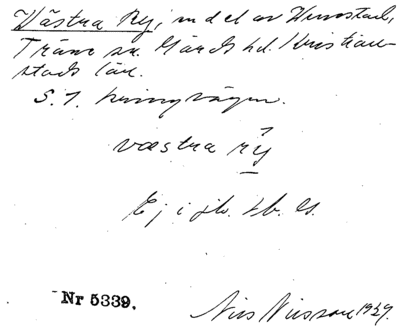 Västra Ry, en del av
Träne sn. Gärds hd. Kristian-
stads län.
S. J. kring vägen.
væstra rȳ
Ej i jb.
Nr 5339.
Nils Nilsson 1929.